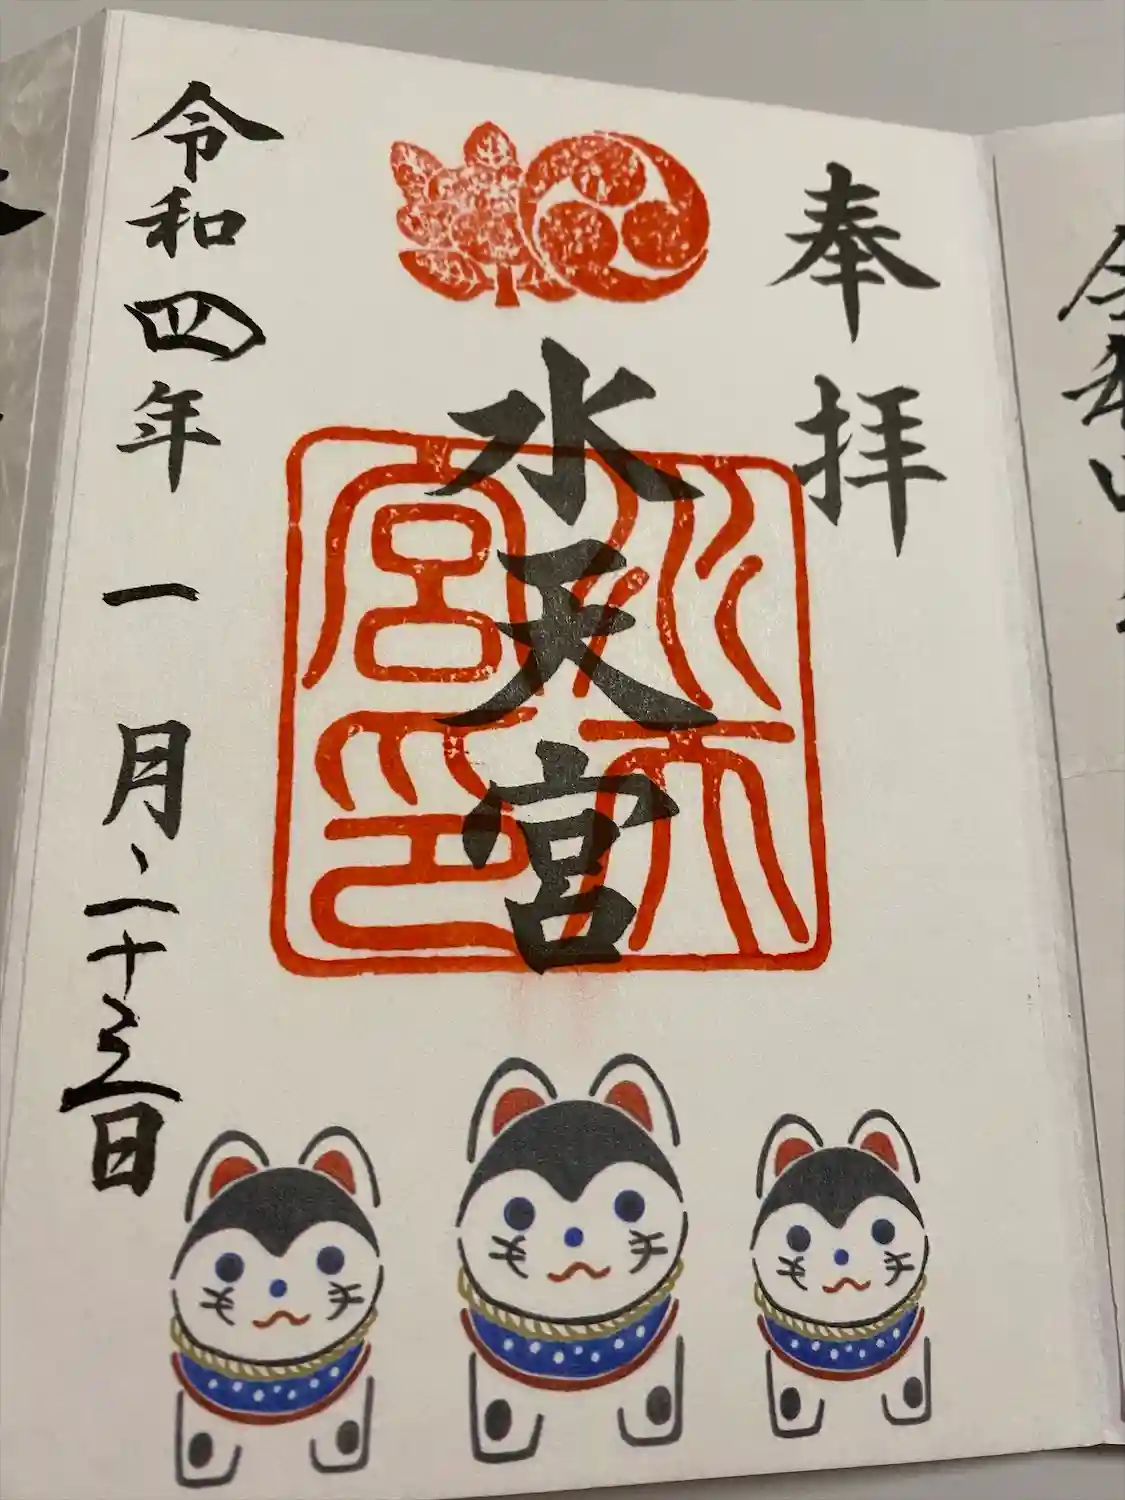 奉拝
水天宮
水天宮印
令和四年 一月二十三日